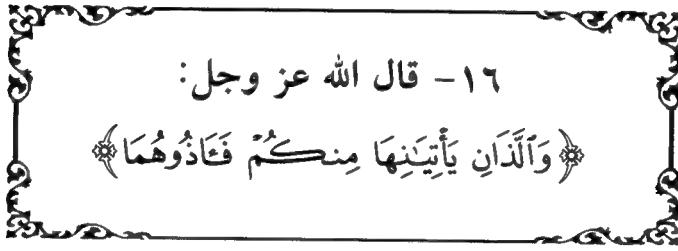 ١٦- قال الله عز وجل:
﴿وَٱلَّذَانِ يَأْتِيَـٰنِهَا مِنكُمْ فَـَٔاذُوهُمَا﴾